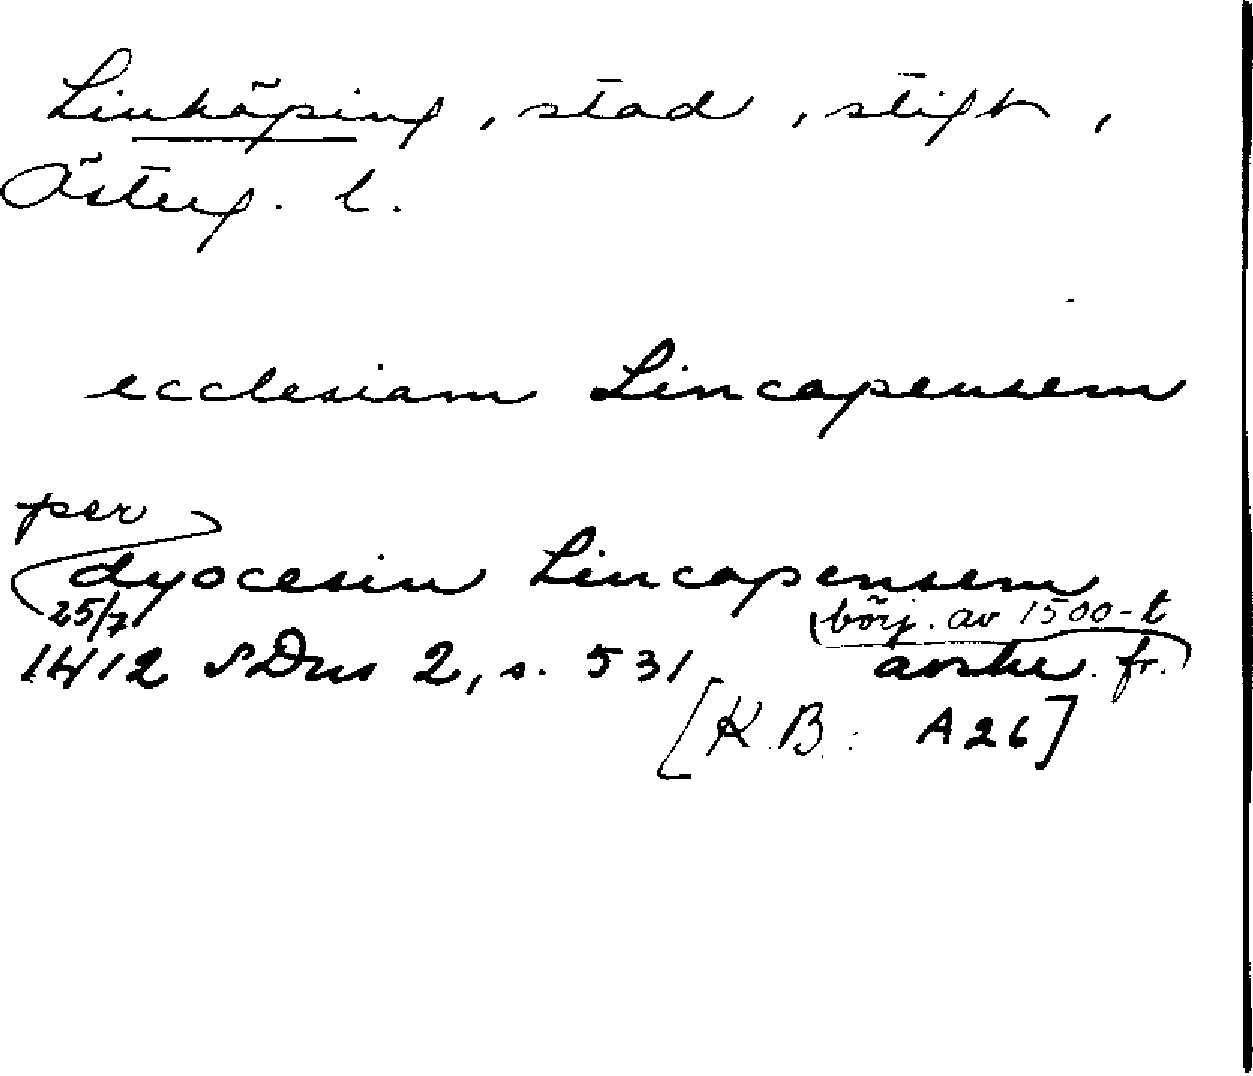 Linköping, stad, stift,
Österg. l.
ecclesiam Lincopensem
per
dyocesin Lincopensem
25/7 börj. av 1500-t
1412 SDns 2, s. 531 avskr. fr.
[K.B.: A 26]